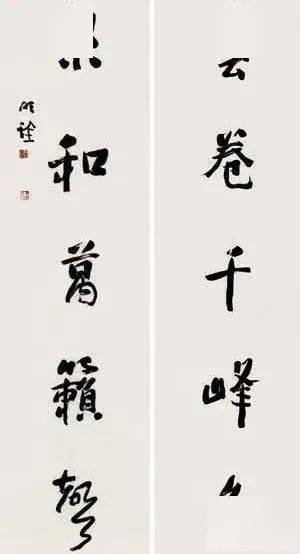 云卷千峰
和萬籟聲
明詮